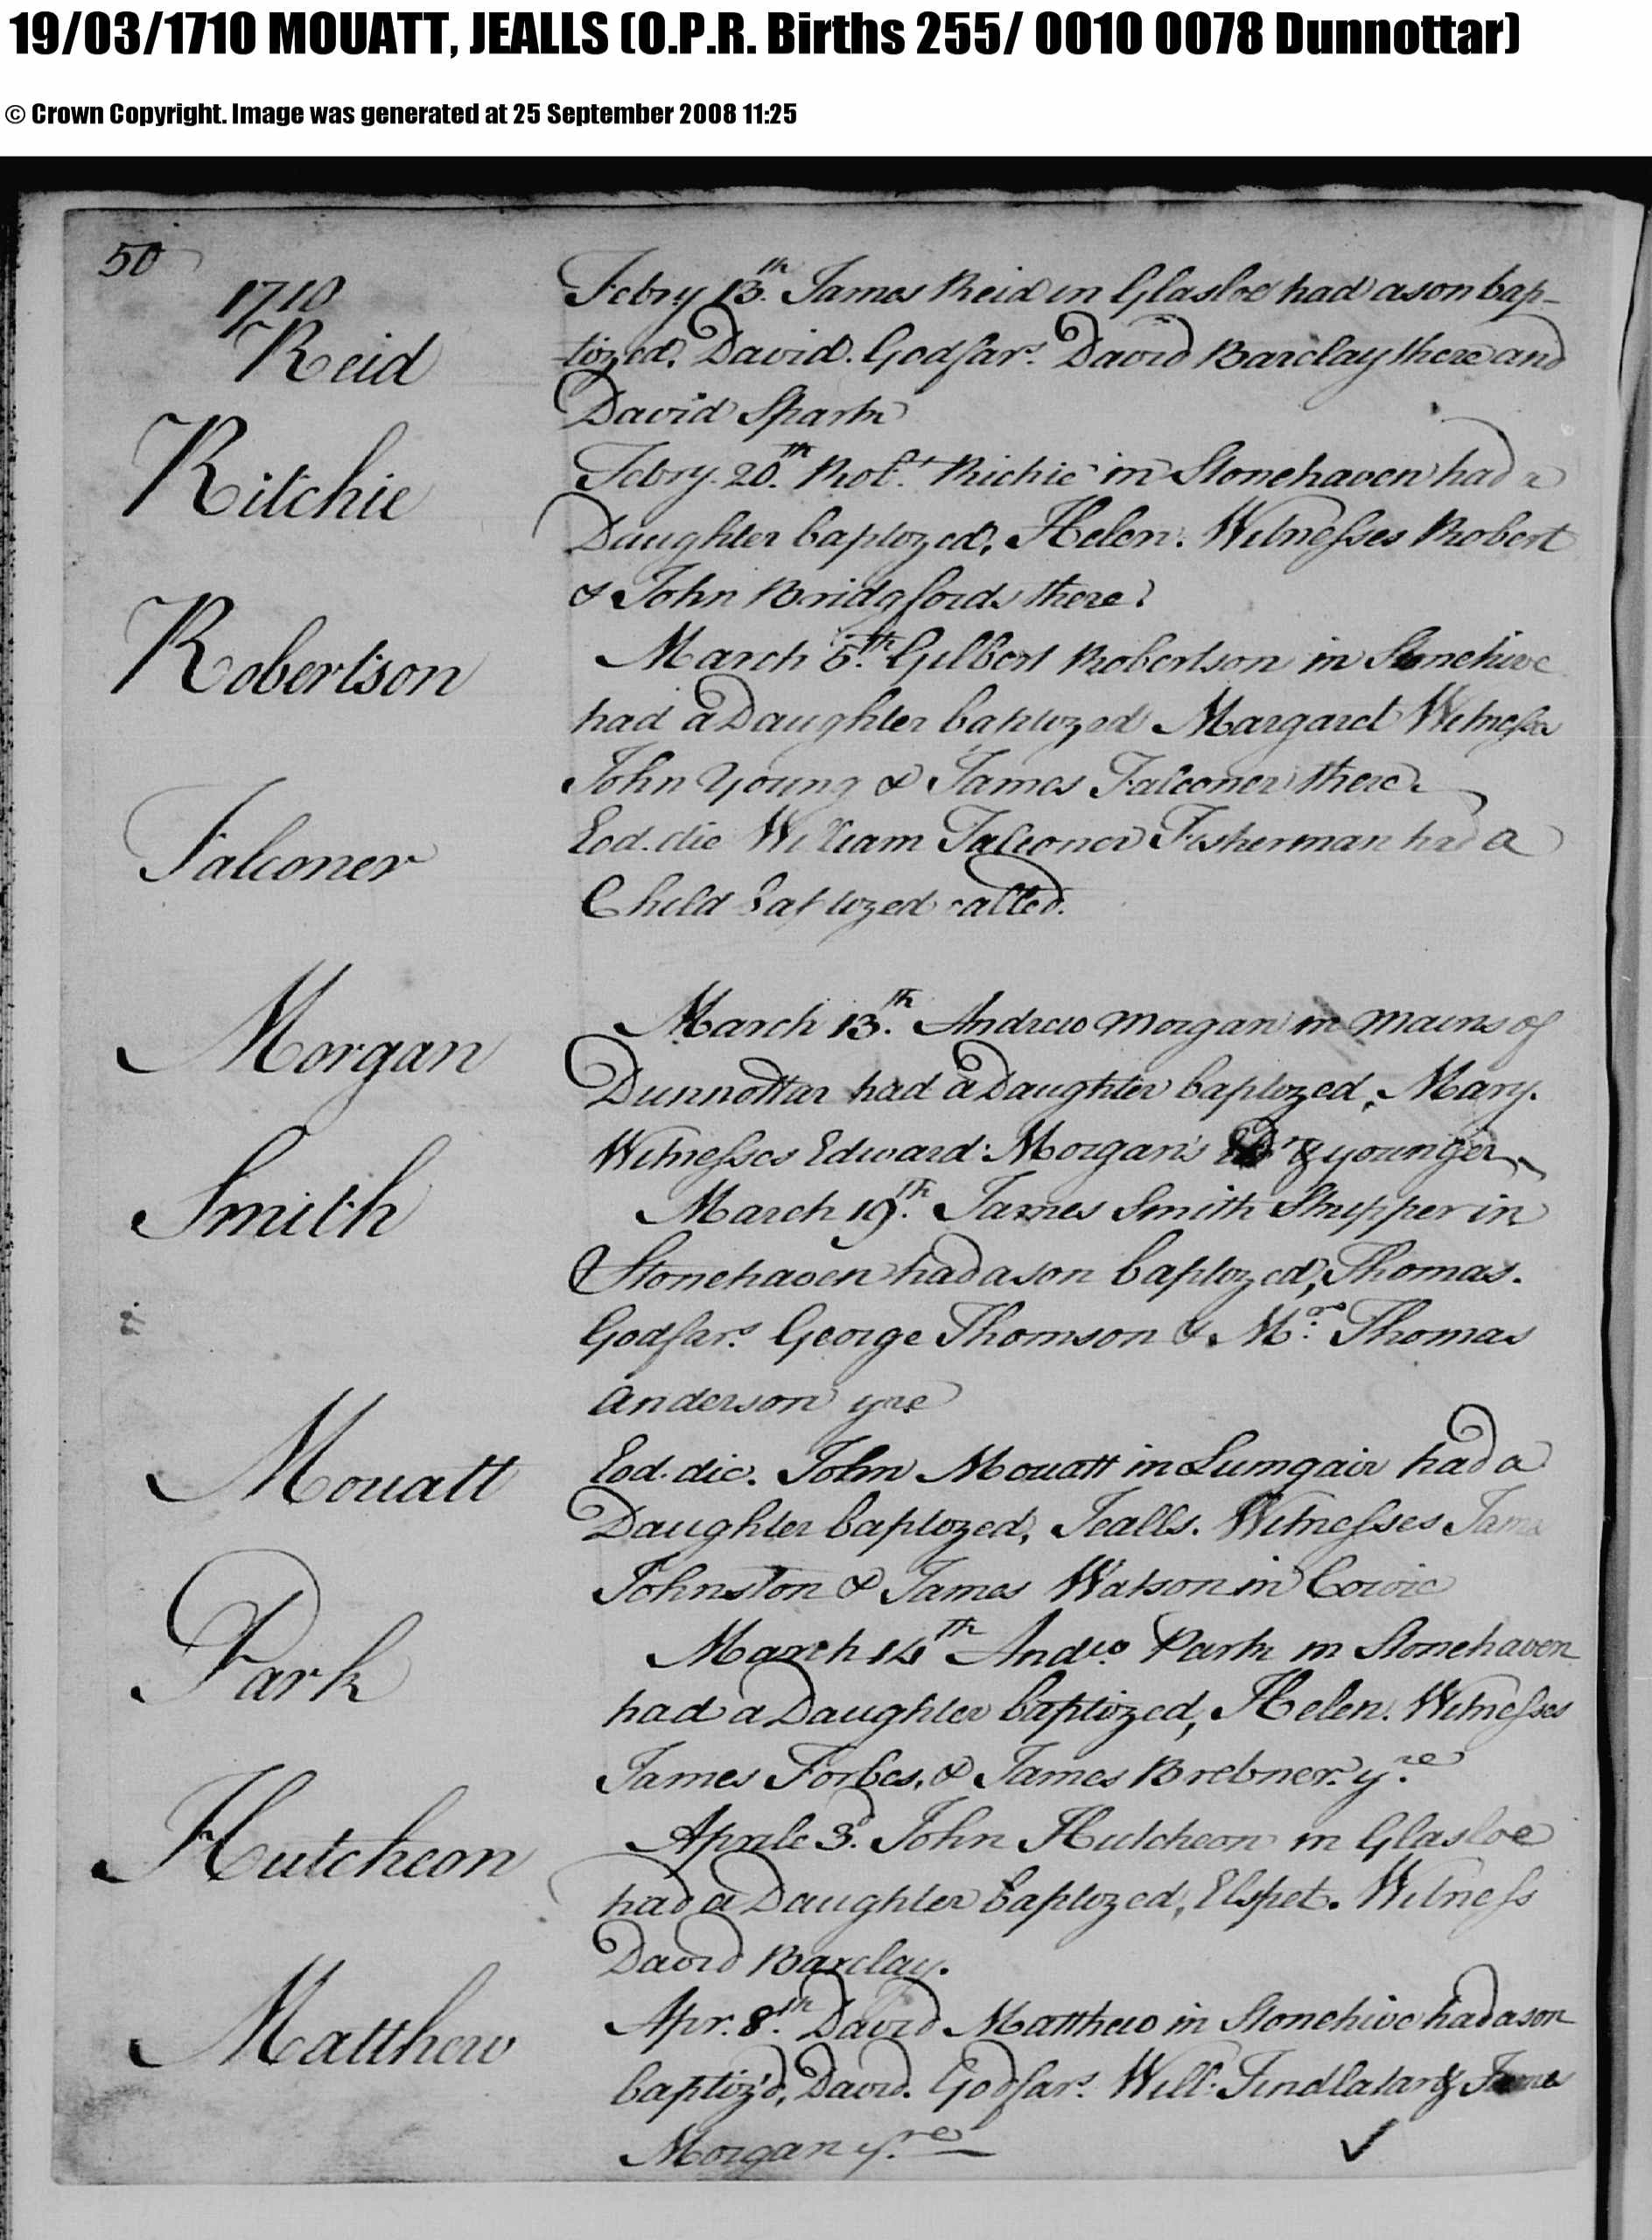 19/03/1710 MOUATT, JEALLS (O.P.R. Births 255/ 0010 0078 Dunnottar)
© Crown Copyright. Image was generated at 25 September 2008 11:25
50
1710
Reid
Febry 13th. James Reid in Glasloe had a son bap-
tized, David. Godfars. David Barclay there and
David Spark
Ritchie
Febry. 20th. Robt. Richie in Stonehaven had a
Daughter baptized, Helen. Witnesses Robert
& John Bridgfords there.
Robertson
March 5th. Gilbert Robertson in Stonehive
had a Daughter baptized Margaret Witnesses
John Young & James Falconer there.
Falconer
Eod. die William Falconer Fisherman had a
Child baptized called.
Morgan
March 13th. Andrew Morgan in Mains of
Dunnottar had a Daughter baptized, Mary.
Witnesses Edward Morgan's & younger
Smith
March 19th. James Smith Shipper in
Stonehaven had a son baptized, Thomas.
Godfars. George Thomson & Thomas
Anderson yre
Mouatt
Eod. die. John Mouatt in Lumgair had a
Daughter baptized, Jealls. Witnesses James
Johnston & James Watson in Cowie
Park
March 14th Andw. Park in Stonehaven
had a Daughter baptized, Helen. Witnesses
James Forbes, & James Brebner. y.re
Hutcheon
Aprile 3d. John Hutcheon in Glasloe
had a Daughter baptized, Elspet. Witness
David Barclay.
Matthew
Apr. 8th. David Matthew in Stonehive had a son
baptiz'd, David. Godfars. Will: Findlatar & James
Morgan y.re